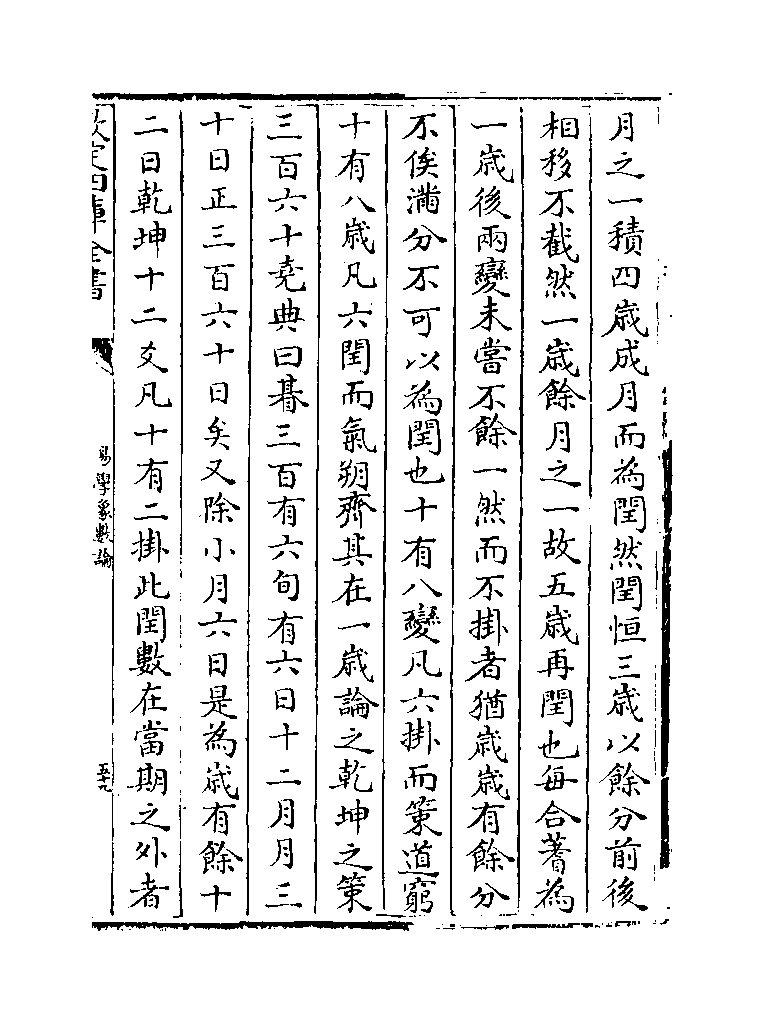 月之一積四歳成月而為閏然閏恒三歳以餘分前後
相移不截然一歳餘月之一故五歳再閏也每合蓍為
一歳後兩變未嘗不餘一然而不掛者猶歳歳有餘分
不俟滿分不可以為閏也十有八變凡六掛而策道窮
十有八歳凡六閏而氣朔齊其在一歳論之乾坤之策
三百六十堯典曰朞三百有六旬有六日十二月月三
十日正三百六十日矣又除小月六日是為歳有餘十
二日乾坤十二爻凡十有二掛此閏數在當期之外者
欽定四庫全書
易學象數論
五十九